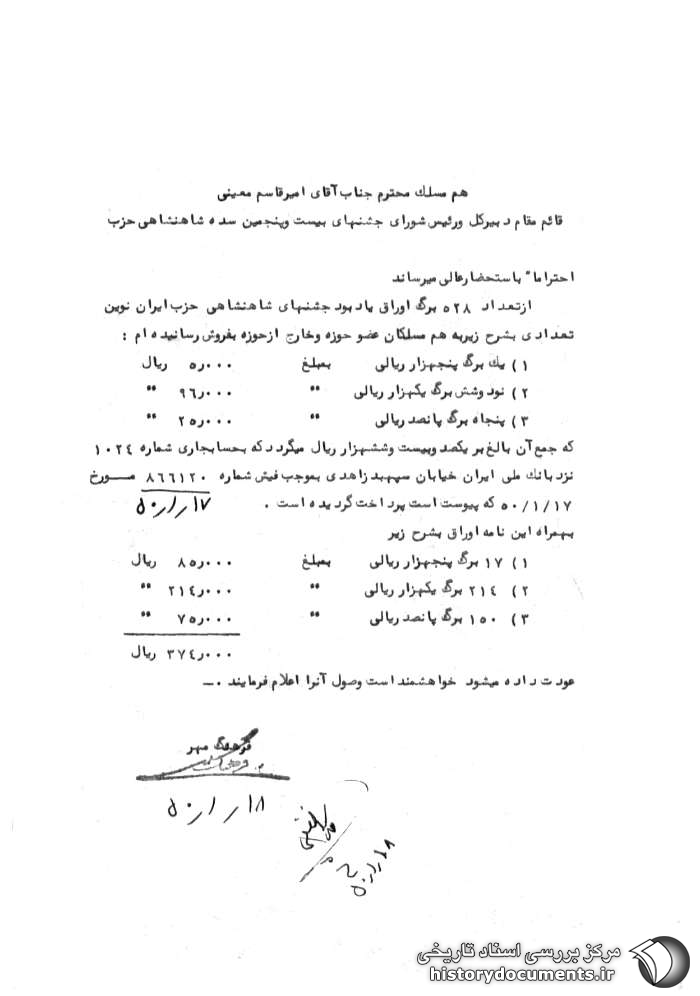 هم مسلك محترم جناب آقای امیرقاسم معینی
قائم مقام دبیرکل ورئیس شورای جشنهای بیست وپنجمین سده شاهنشاهی حزب
احتراما" باستحضارعالی میرساند
ازتعداد ٥٢٨ برگ اوراق یادبود جشنهای شاهنشاهی حزب ایران نوین
تعدادی بشرح زیربه هم مسلکان عضو حوزه وخارج ازحوزه بفروش رسانیده ام :
١) یك برگ پنجهزار ریالی بمبلغ ٥ر٠٠٠ ریال
٢) نود وشش برگ یکهزار ریالی " ٩٦ر٠٠٠ "
٣) پنجاه برگ پانصد ریالی " ٢٥ر٠٠٠ "
که جمع آن بالغ بر یکصد وبیست وششهزار ریال میگردد که بحسابجاری شماره ١٠٢٤
نزد بانك ملی ایران خیابان سپهبد زاهدی بموجب فیش شماره ٨٦٦١٢٠ مــورخ
٥٠/١/١٧ که پیوست است پرداخت گردیده است . ١٧ر١ر٥٠
بهمراه این نامه اوراق بشرح زیر
١) ١٧ برگ پنجهزار ریالی بمبلغ ٨٥ر٠٠٠ ریال
٢) ٢١٤ برگ یکهزار ریالی " ٢١٤ر٠٠٠ "
٣) ١٥٠ برگ پانصد ریالی " ٧٥ر٠٠٠ "
٣٧٤ر٠٠٠ ریال
عودت داده میشود خواهشمند است وصول آنرا اعلام فرمایند .ــ
فرهنگ مهر
١٨ر١ر٥٠
١٨ر١ر٥٠
مرکز بررسی اسناد تاریخی
historydocuments.ir